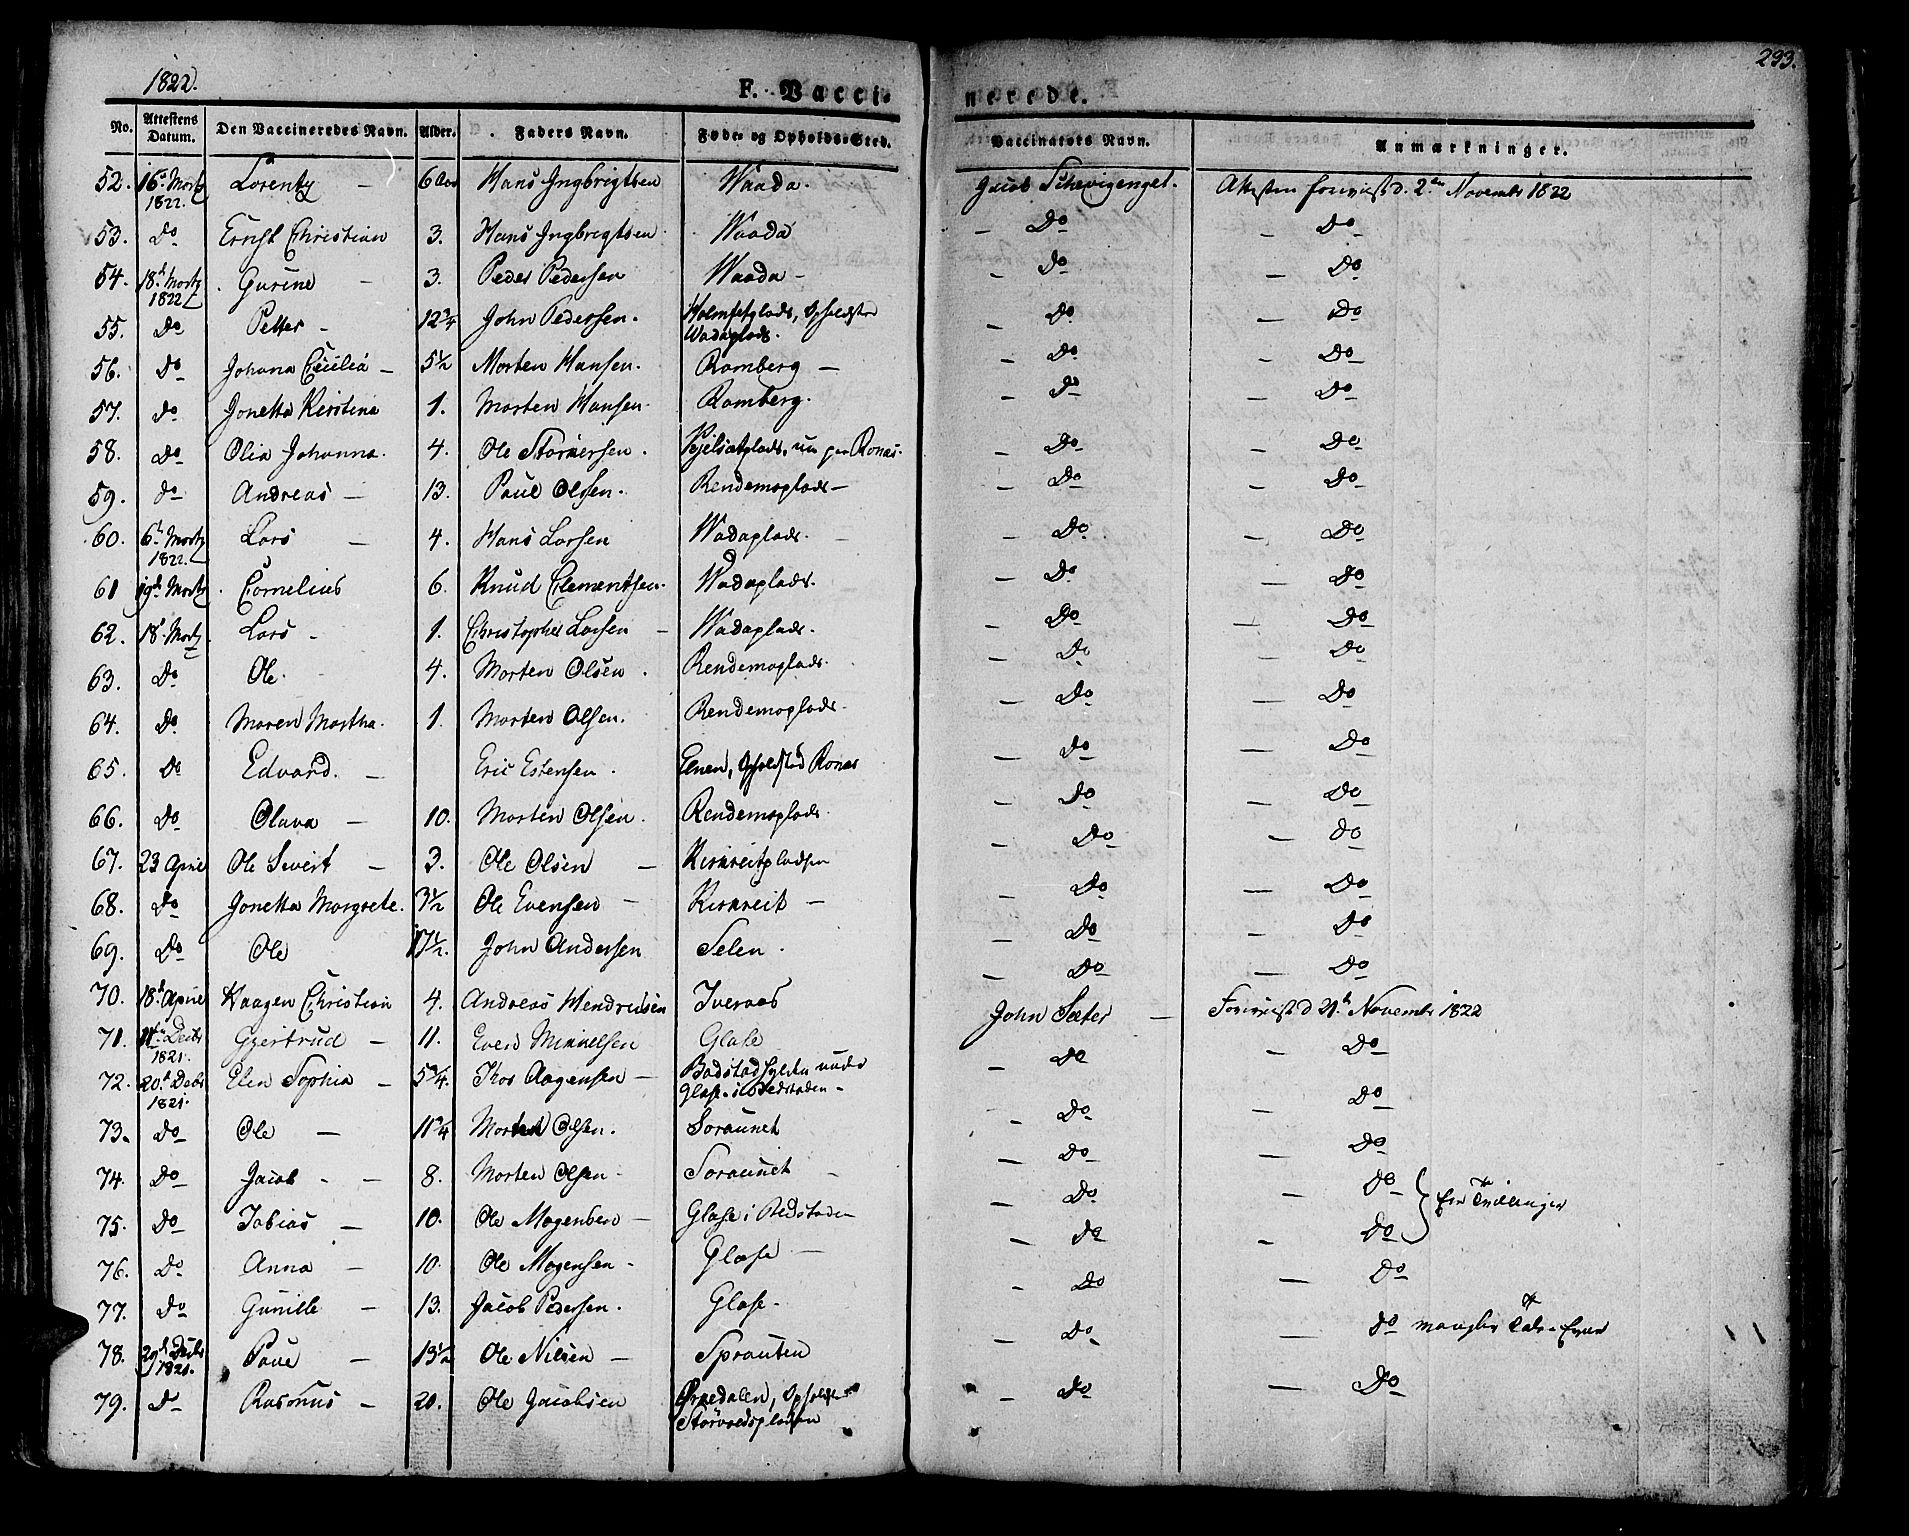 1822.
293.
F. Vacci-
nerede.
No. Attestens Datum. Den Vaccineredes Navn. Alder. Faders Navn. Føde- og Opholds-Sted. Vaccinators Navn. Anmærkninger.
52. 16. Martz 1822. Lorentz – 6 Hans Ingbrigtsen Waada. Jacob Attesten foreviist d. 2den November 1822
53. Do Ernst Christian 3. Hans Ingbrigtsen Waada – Do – Do
54. 18d Martz 1822 Gurine – 3. Peder Pedersen Waada – – Do – Do
55. Do Petter – 12 3/4 John Pedersen. Holmsetplads,
Wadaplads. – Do – Do
56. Do Johana Cecilia – 5 1/2 Morten Hansen. Romberg – – Do – Do
57. Do Jonetta Kirstina 1. Morten Hansen. Romberg. – Do – Do
58. Do Olia Johanna. 4. Ole Størkersen. nu paa Ronas. – Do – Do
59. Do Andreas – 13. Poul Olsen. Rendemoplads – – Do – Do
60. 6te Martz 1822. Lars – 4. Hans Larsen Wadaplads. – Do – Do
61 19d Martz Cornelius 6. Knud Clementsen. Wadaplads. – Do – Do
62. 18d Martz Lars – 1. Christopher Larsen – Wadaplads. – Do – Do
63. Do Ole. 4. Morten Olsen. Rendemoplads. – Do – Do
64. Do Maren Martha. 1. Morten Olsen. Rendemoplads. – Do – Do
65. Do Edvard. – Eric Estensen. Elnen, Opholdsted Ronas – Do – Do
66. Do Olava – 10. Morten Olsen. Rendemoplads. – Do – Do
67. 23 April Ole Sivert – 3. Ole Olsen – Kirkreitpladsen – Do – Do
68. Do Jonetta Margrete. 3 1/2 Ole Evensen – Kirkreit – – Do – Do
69. Do Ole 17 1/2. John Andersen Selen. – Do – Do
70. 18d April Haagen Christian 4. Andreas Hendricksen Iveraas – Do – Do
71. 11te Decbr 1821. Gjertrud – 11. Even Mikkelsen Glase John Sæter – Foreviist d 21d November 1822
72. 20d Decbr 1821. Elen Sophia – 5 3/4. Thor Aagensen – under
Glase i Redstaden – – Do – Do
73. Do Ole – 11 3/4 Morten Olsen. Soraunet – Do – Do
74. Do Jacob – – 8. Morten Olsen – Soraunet – – Do – Do
75. Do Tobias – 10. Ole Mogensen – Glase i Redstaden – Do – Do
76. Do Anna – 10. Ole Mogensen – Glase – – Do – Do
ere Tvillinger
77. Do Gunille – 13. Jacob Pedersen. Glase. – Do – Do
78. 29d Decbr 1821. Paul – 13 1/2 Ole Nilsen – Sprauten – Do – Do mangler
79. Do Rasmus – 20. Ole Jacobsen Ørkedalen,
Størvoldspladsen – Do – Do